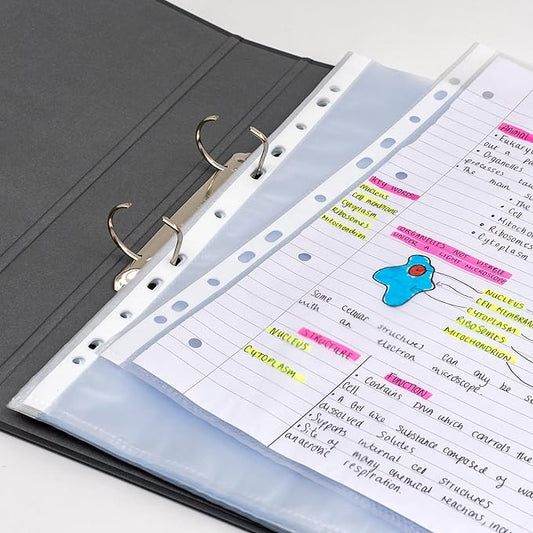 ANIMAL
• Eukaryo
out a pa
• Organelles
processes
The main
• the
• Cell
• Mitochon
• Ribosomes
• Cytoplasm
KEY WORD
NUCLEUS
CELL MEMBRANE
CYTOPLASM
RIBOSOMES
MITOCHONDRION
ORGANELLES NOT VISABLE
UNDER A LIGHT MICROSCOPE
NUCLEUS
CELL MEMBRANE
CYTOPLASM
RIBOSOMES
MITOCHONDRION
Some cellular structures can only be se
with an electron microscope.
STRUCTURE
NUCLEUS
CYTOPLASM
FUNCTION
• Contains DNA which controls the
cell
• A Gel like substance composed of wa
dissolved solutes
• Supports internal cell structures
• Site of many chemical reactions, inclu
anaerobic respiration.